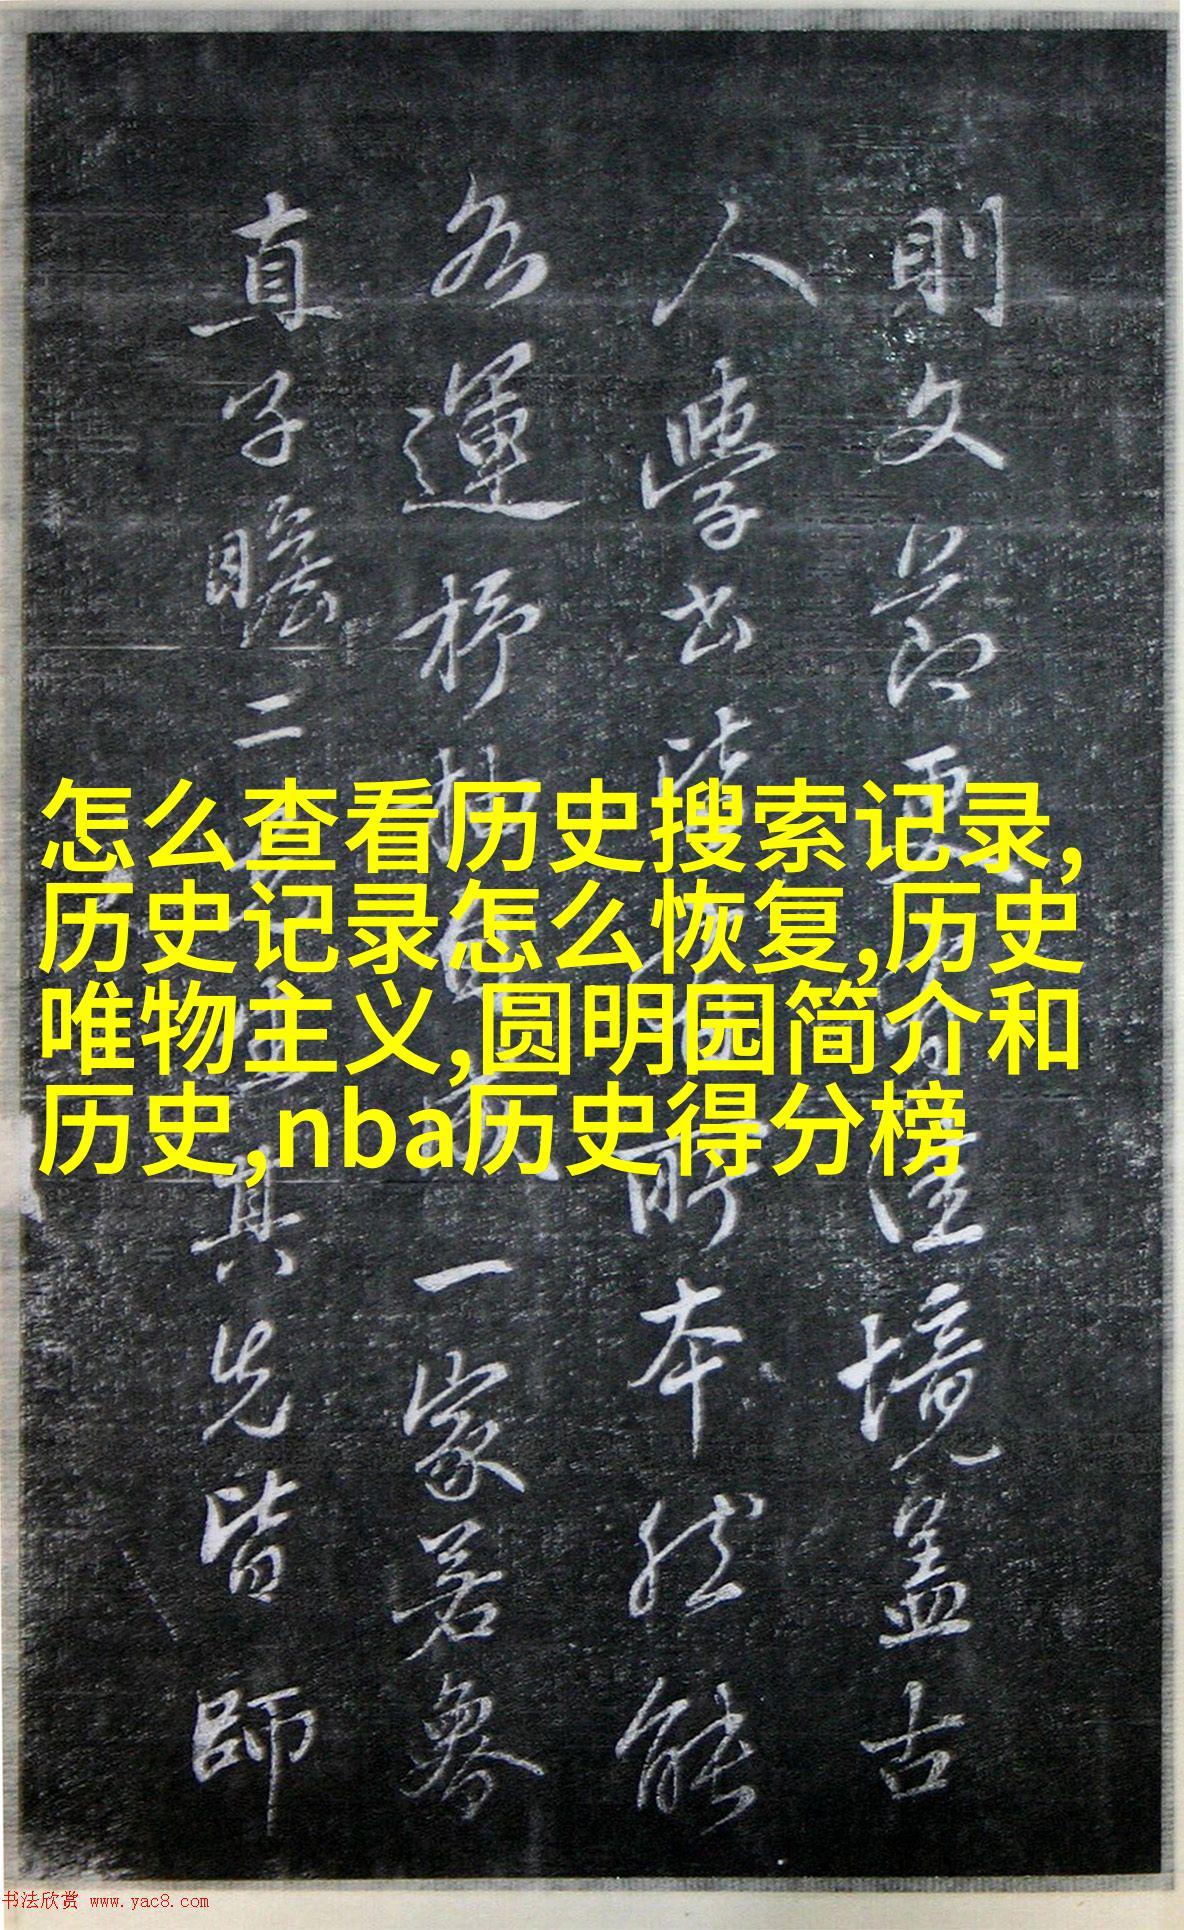 則文節更境盖古
人學書皆所本然能
各運杼柚一家若魯
直子瞻二其先皆師
怎么查看历史搜索记录,
历史记录怎么恢复,历史
唯物主义,圆明园简介和
历史,nba历史得分榜
书法欣赏 www.yac8.com